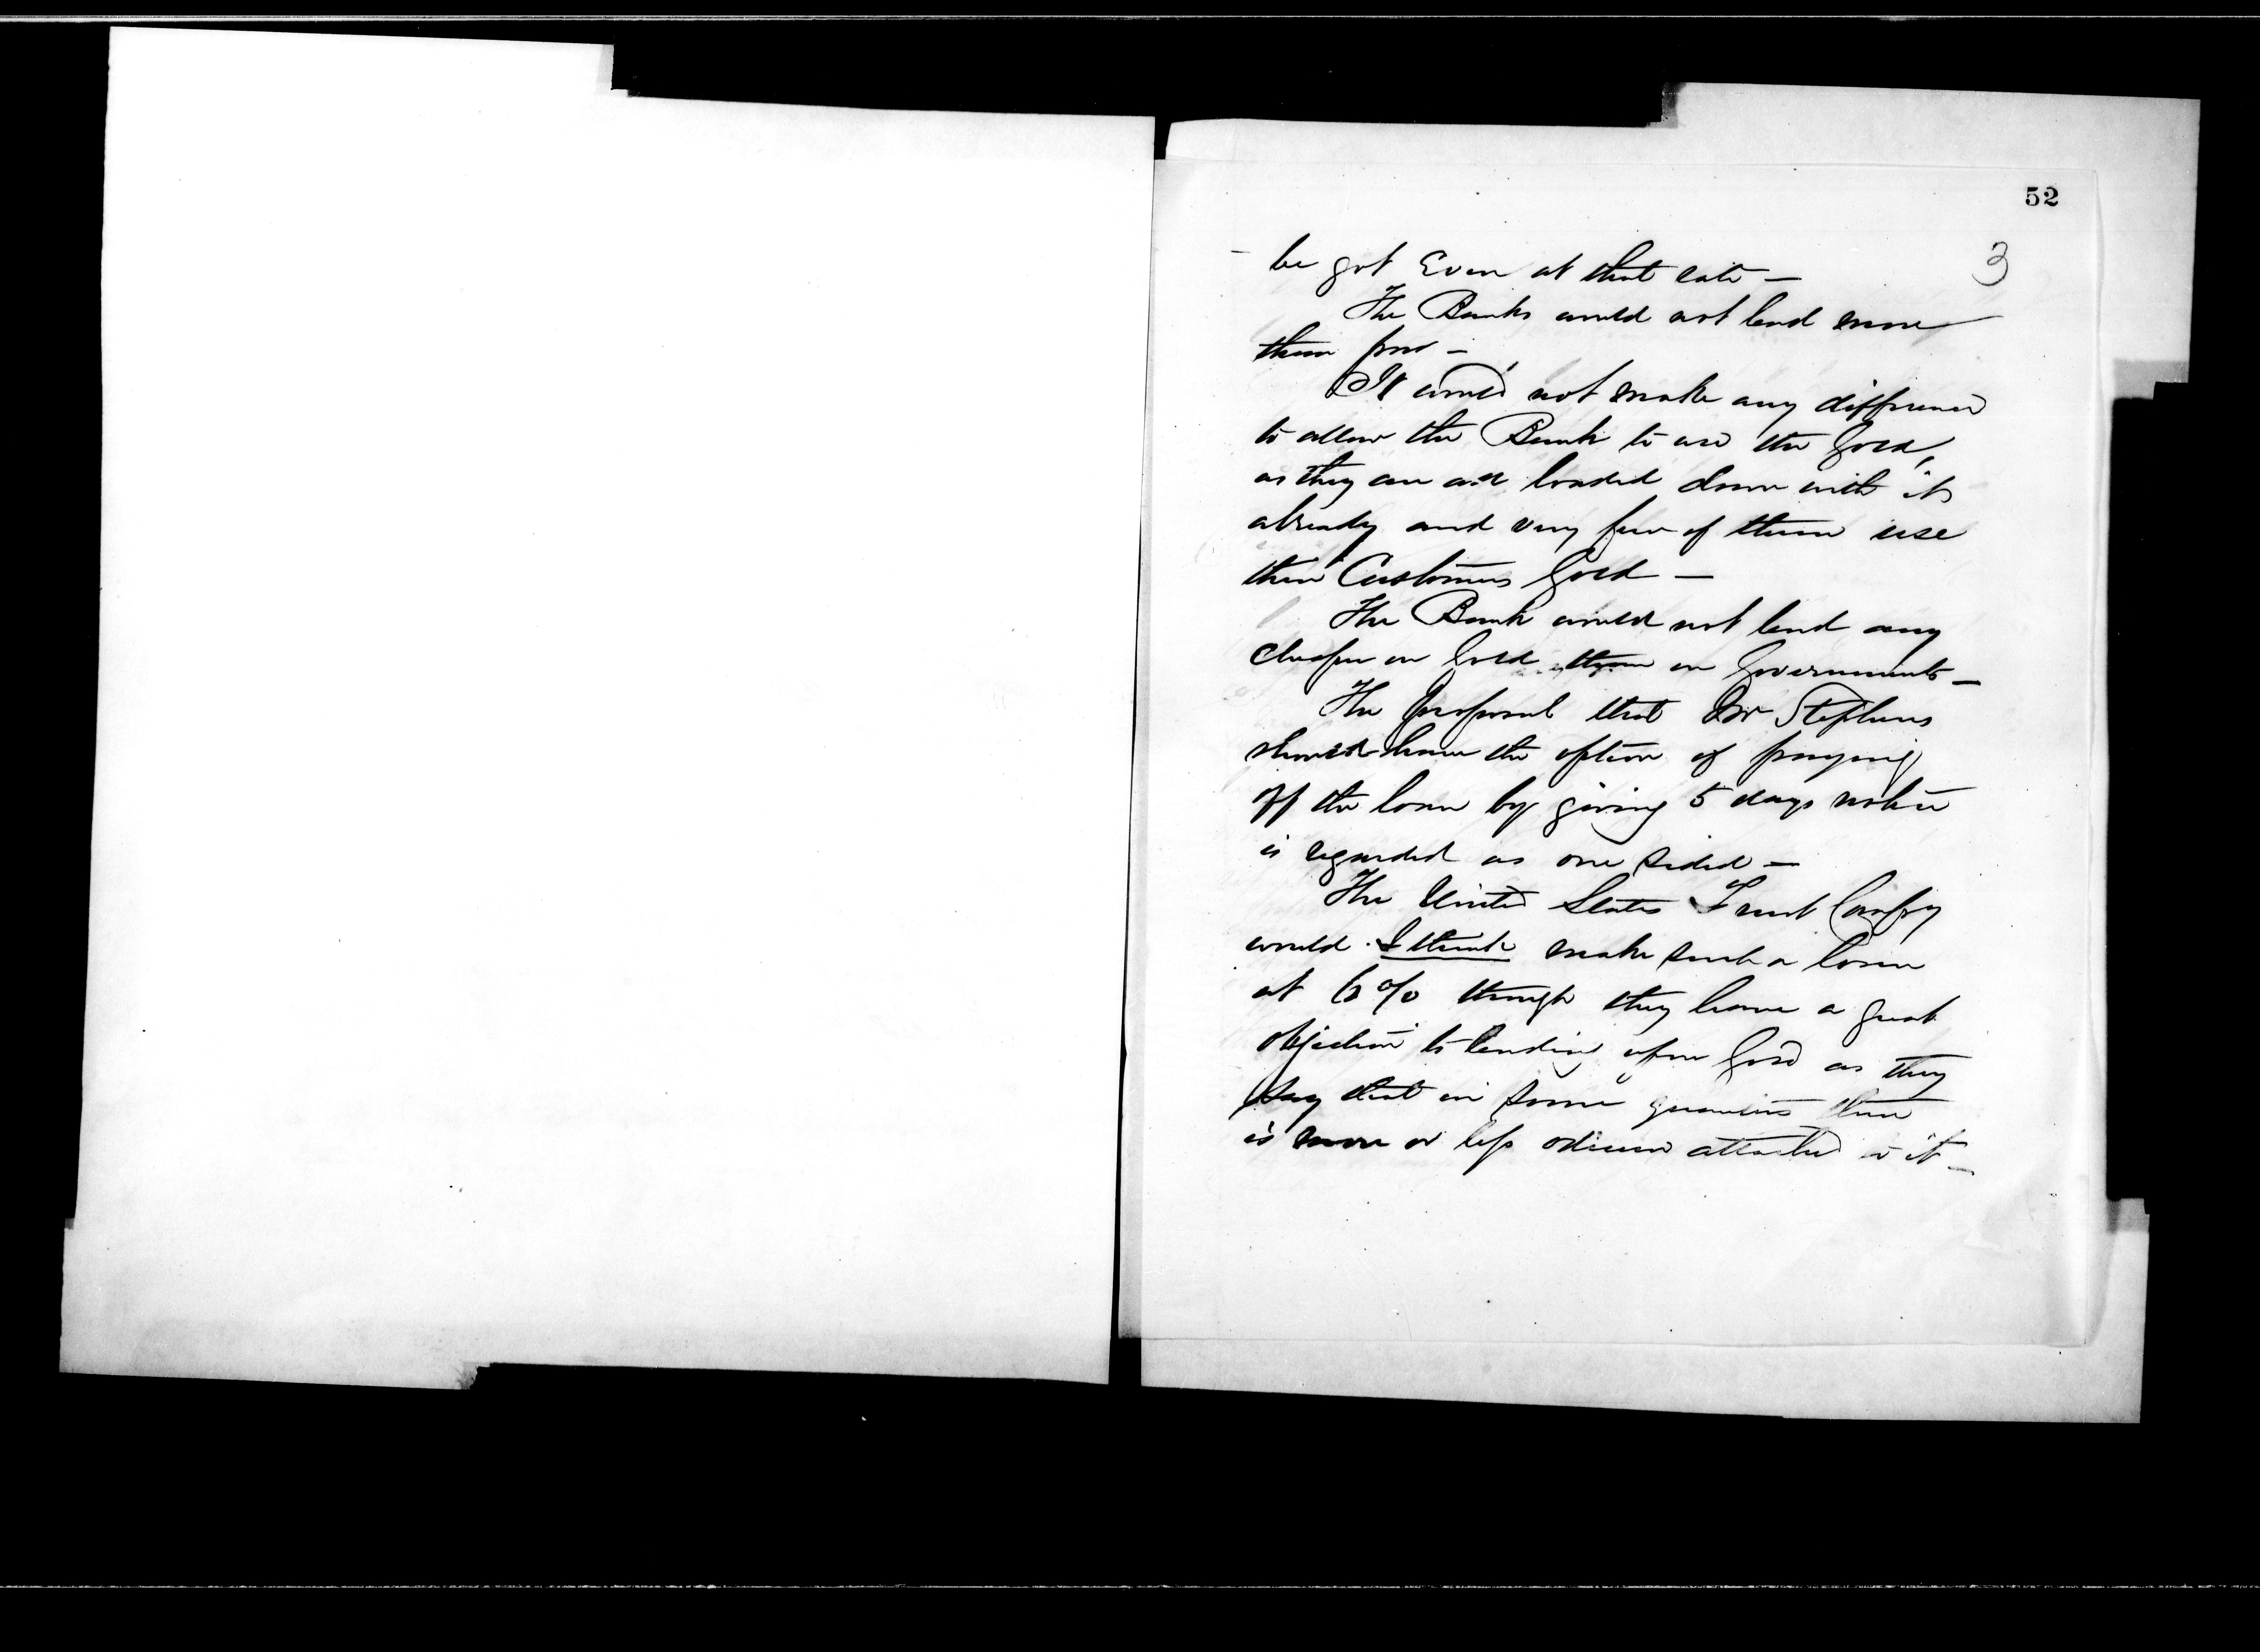 52
3
be got Even at that rate —
The Banks would not lend more
than par —
It would not make any difference
to allow the Bank to use the Gold,
as they are all loaded down with it
already and very few of them use
their Customers Gold —
The Bank would not lend any
cheaper on Gold than on Governments —
The proposal that Mr Stephens
should have the option of paying
off the loan by giving 5 days notice
is regarded as one sided —
The United States Trust Compy
would I think make such a loan
at 6% though they have a great
objection to lending upon Gold as they
say that in some quarters there
is more or less odium attached to it —